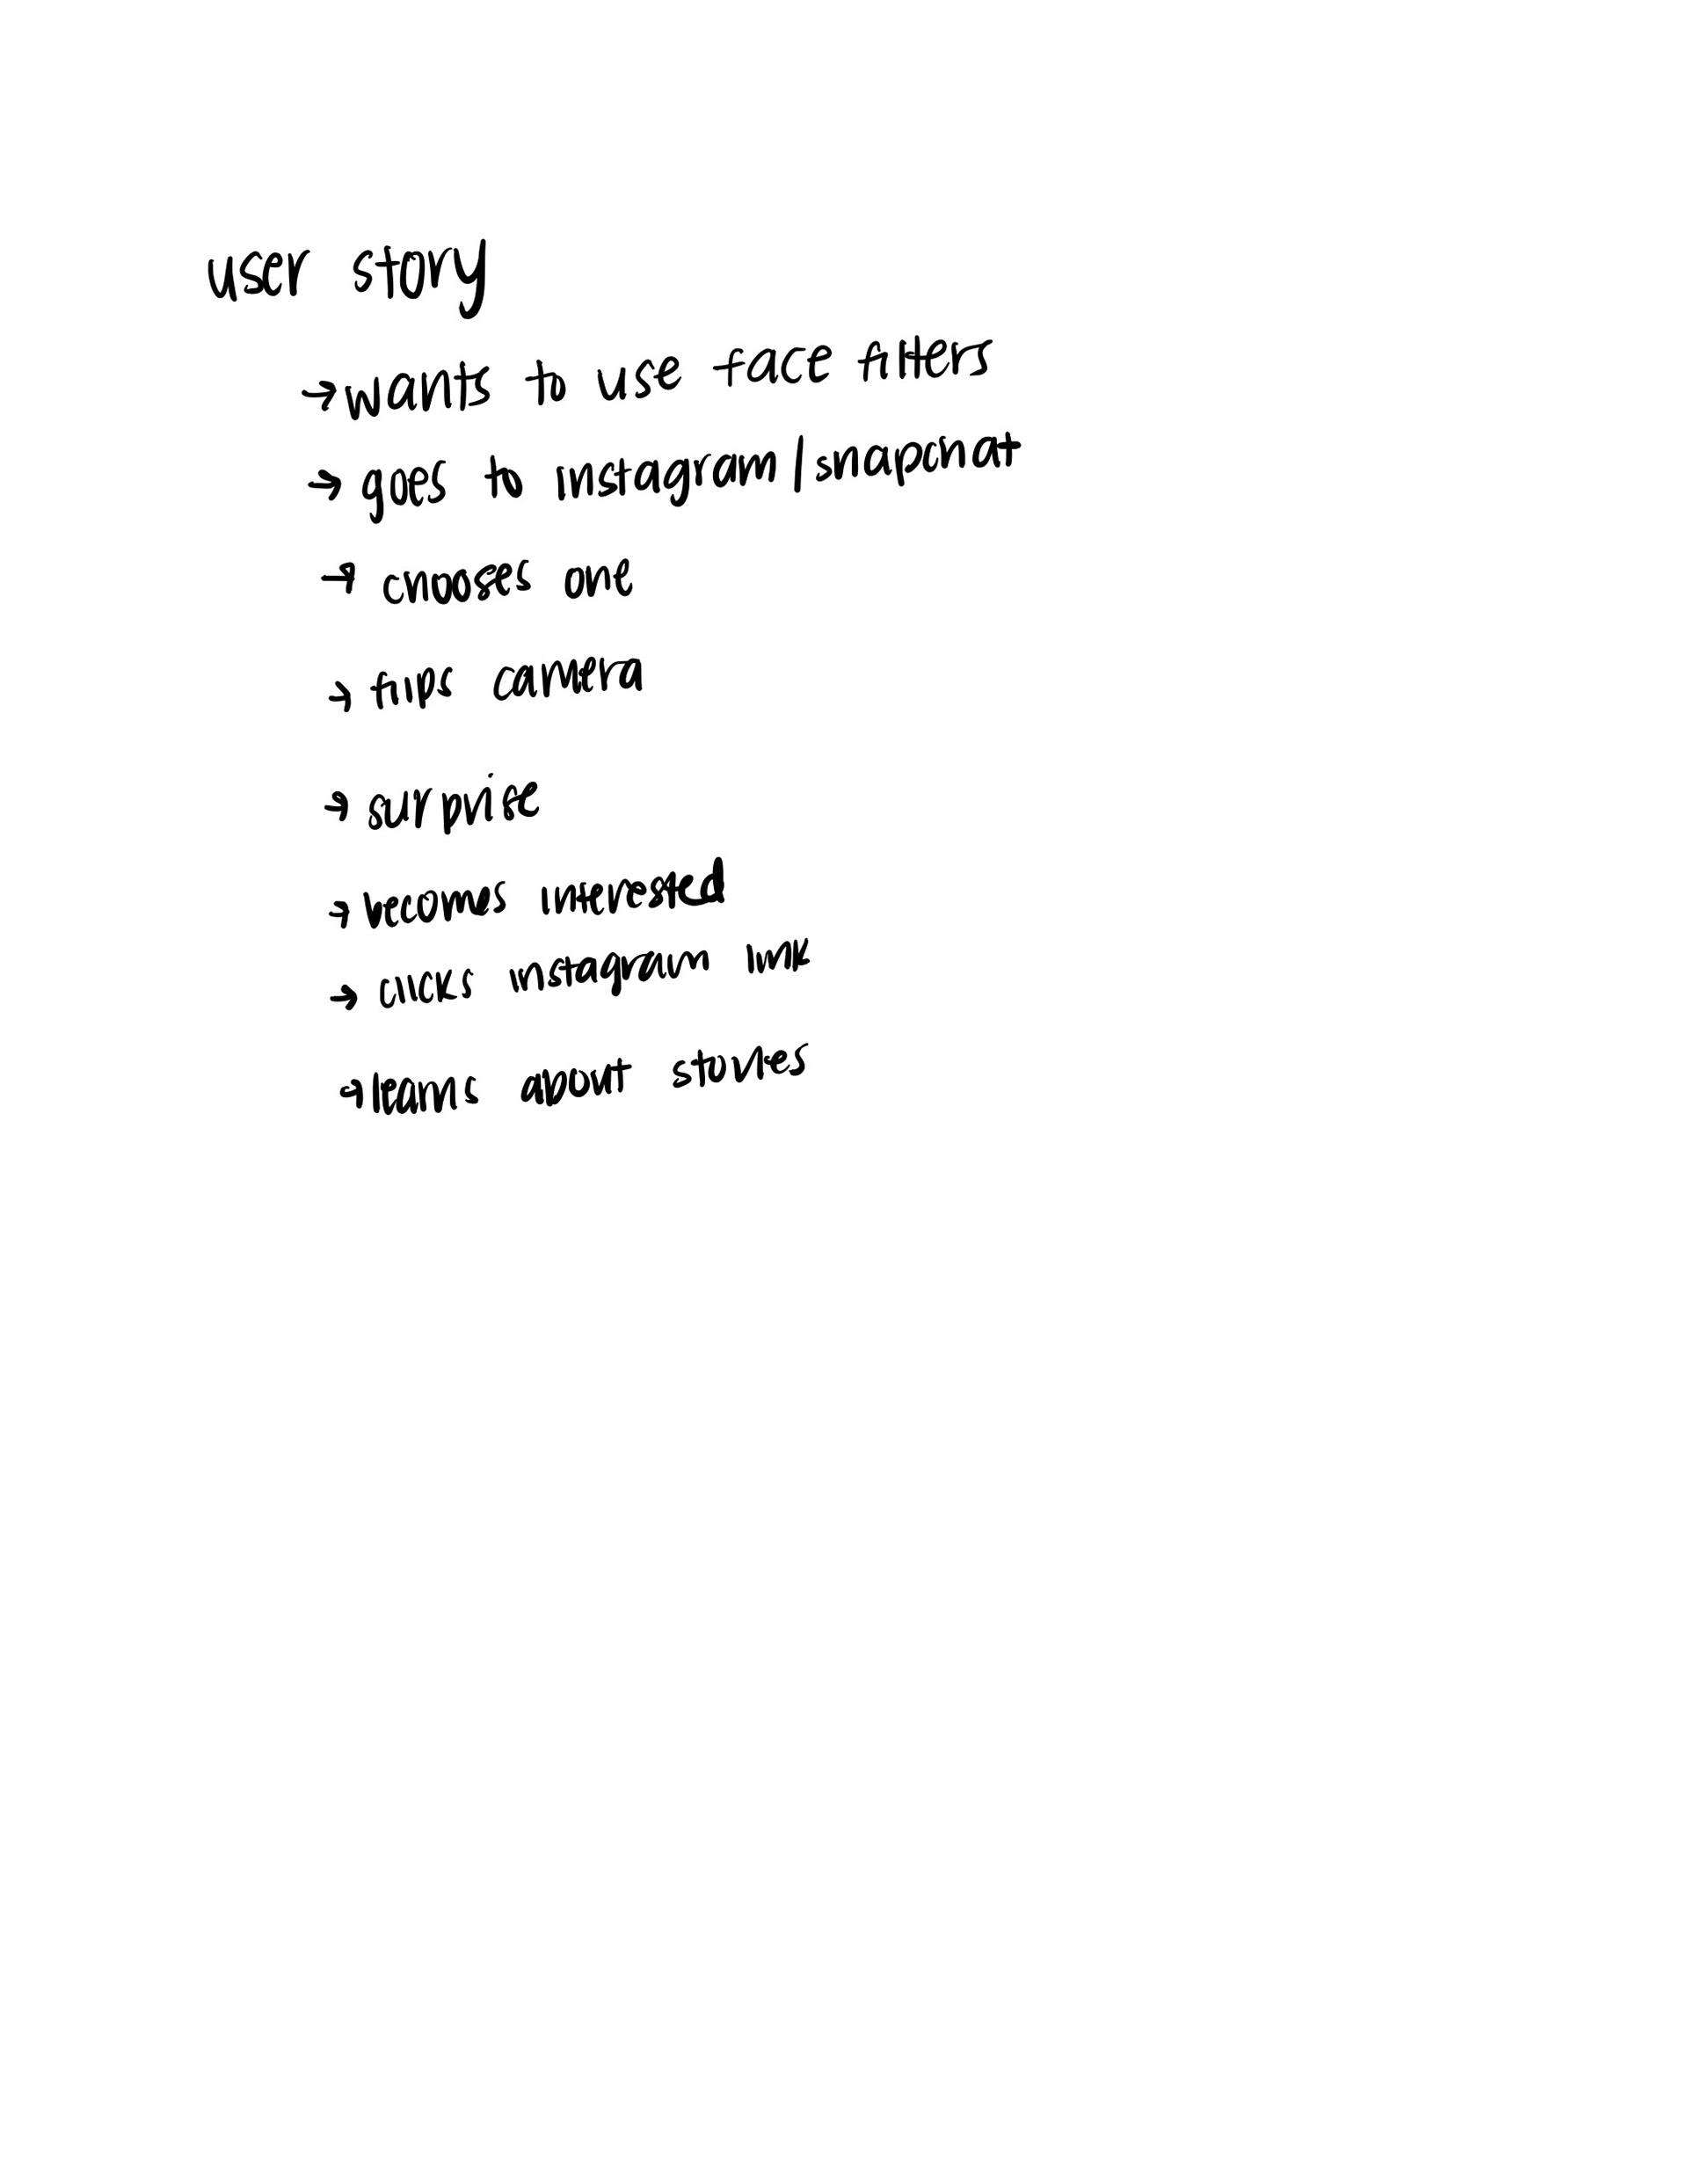 user story
→ wants to use face filters
→ goes to instagram/snapchat
→ chooses one
→ flips camera
→ surprise
→ becomes interested
→ clicks instagram link
→ learns about stories